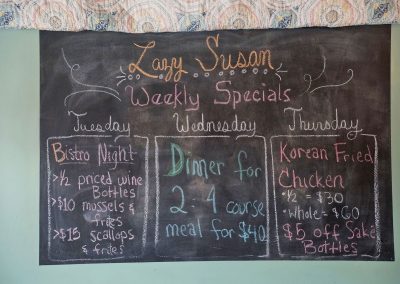 Lazy Susan
Weekly Specials
Tuesday
Bistro Night
>½ priced wine
Bottles
>$10 mussels &
frites
>$15 scallops
& frites
Wednesday
Dinner for
2 - 4 course
meal for $40
Thursday
Korean Fried
Chicken
• ½ = $30
• Whole = $60
$5 off Sake
Bottles